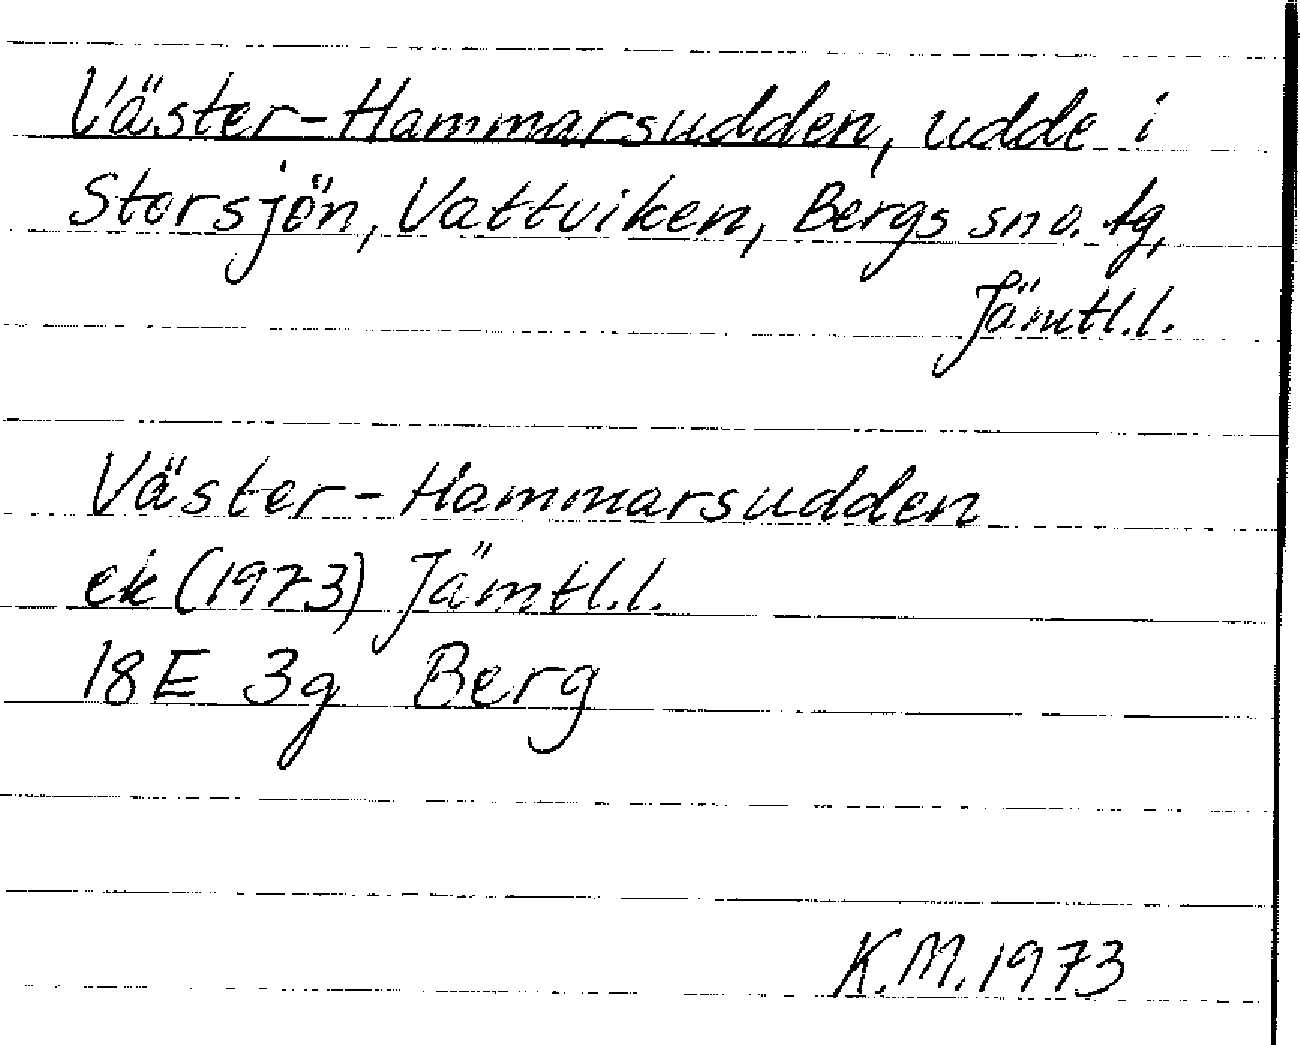 Väster-Hammarsudden, udde i
Storsjön, Vattviken, Bergs sn o. tg,
Jämtl.l.
Väster-Hammarsudden
ek (1973) Jämtl.l.
18E 3g Berg
K.M. 1973